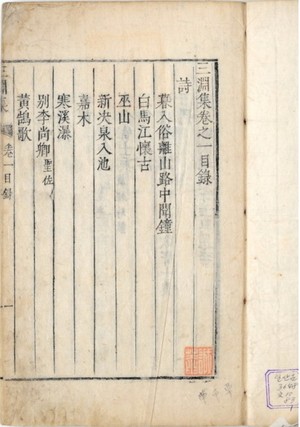 三淵集卷之一目錄
詩
暮入俗離山路中聞鐘
白馬江懷古
巫山
新決泉入池
嘉木
寒溪瀑
別李尚卿聖佐
黃鵠歌
三淵集 卷一目錄 一